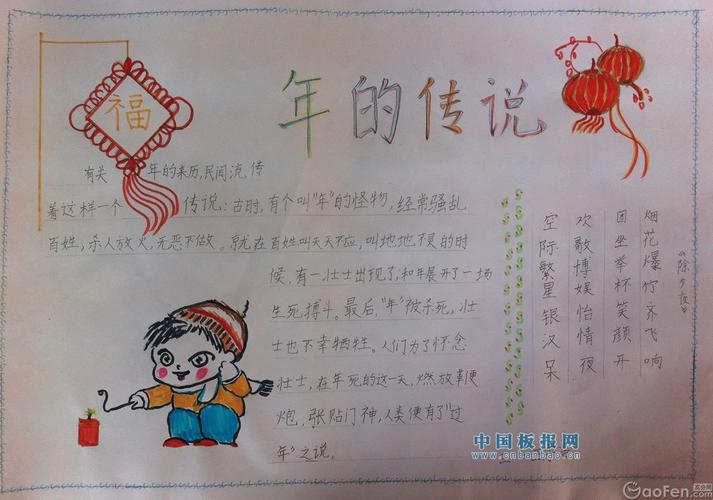 年的传说
福
有关年的来历，民间流传
着这样一个传说：古时，有个叫"年"的怪物，经常骚乱
百姓，杀人放火，无恶不做。就在百姓叫天天不应，叫地地不灵的时
候，有一壮士出现了，和年展开了一场
生死搏斗。最后，"年"被杀死，壮
士也不幸牺牲。人们为了怀念
壮士，在年死的这一天，燃放鞭
炮，张贴门神，人类便有了"过
年"之说。
《除夕夜》
烟花爆竹齐飞响
团坐举杯笑颜开
欢歌博娱怡情夜
空际繁星银汉呆
中国板报网
www.cnbanbao.cn
GaoFen.com
高分网